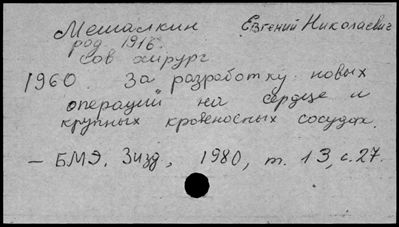 Мешалкин Евгений Николаевич
род. 1916.
сов хирург
1960. За разработку новых
операций на сердце и
крупных кровеносных сосудах.
– БМЭ. 3изд, 1980, т. 13, с. 27.